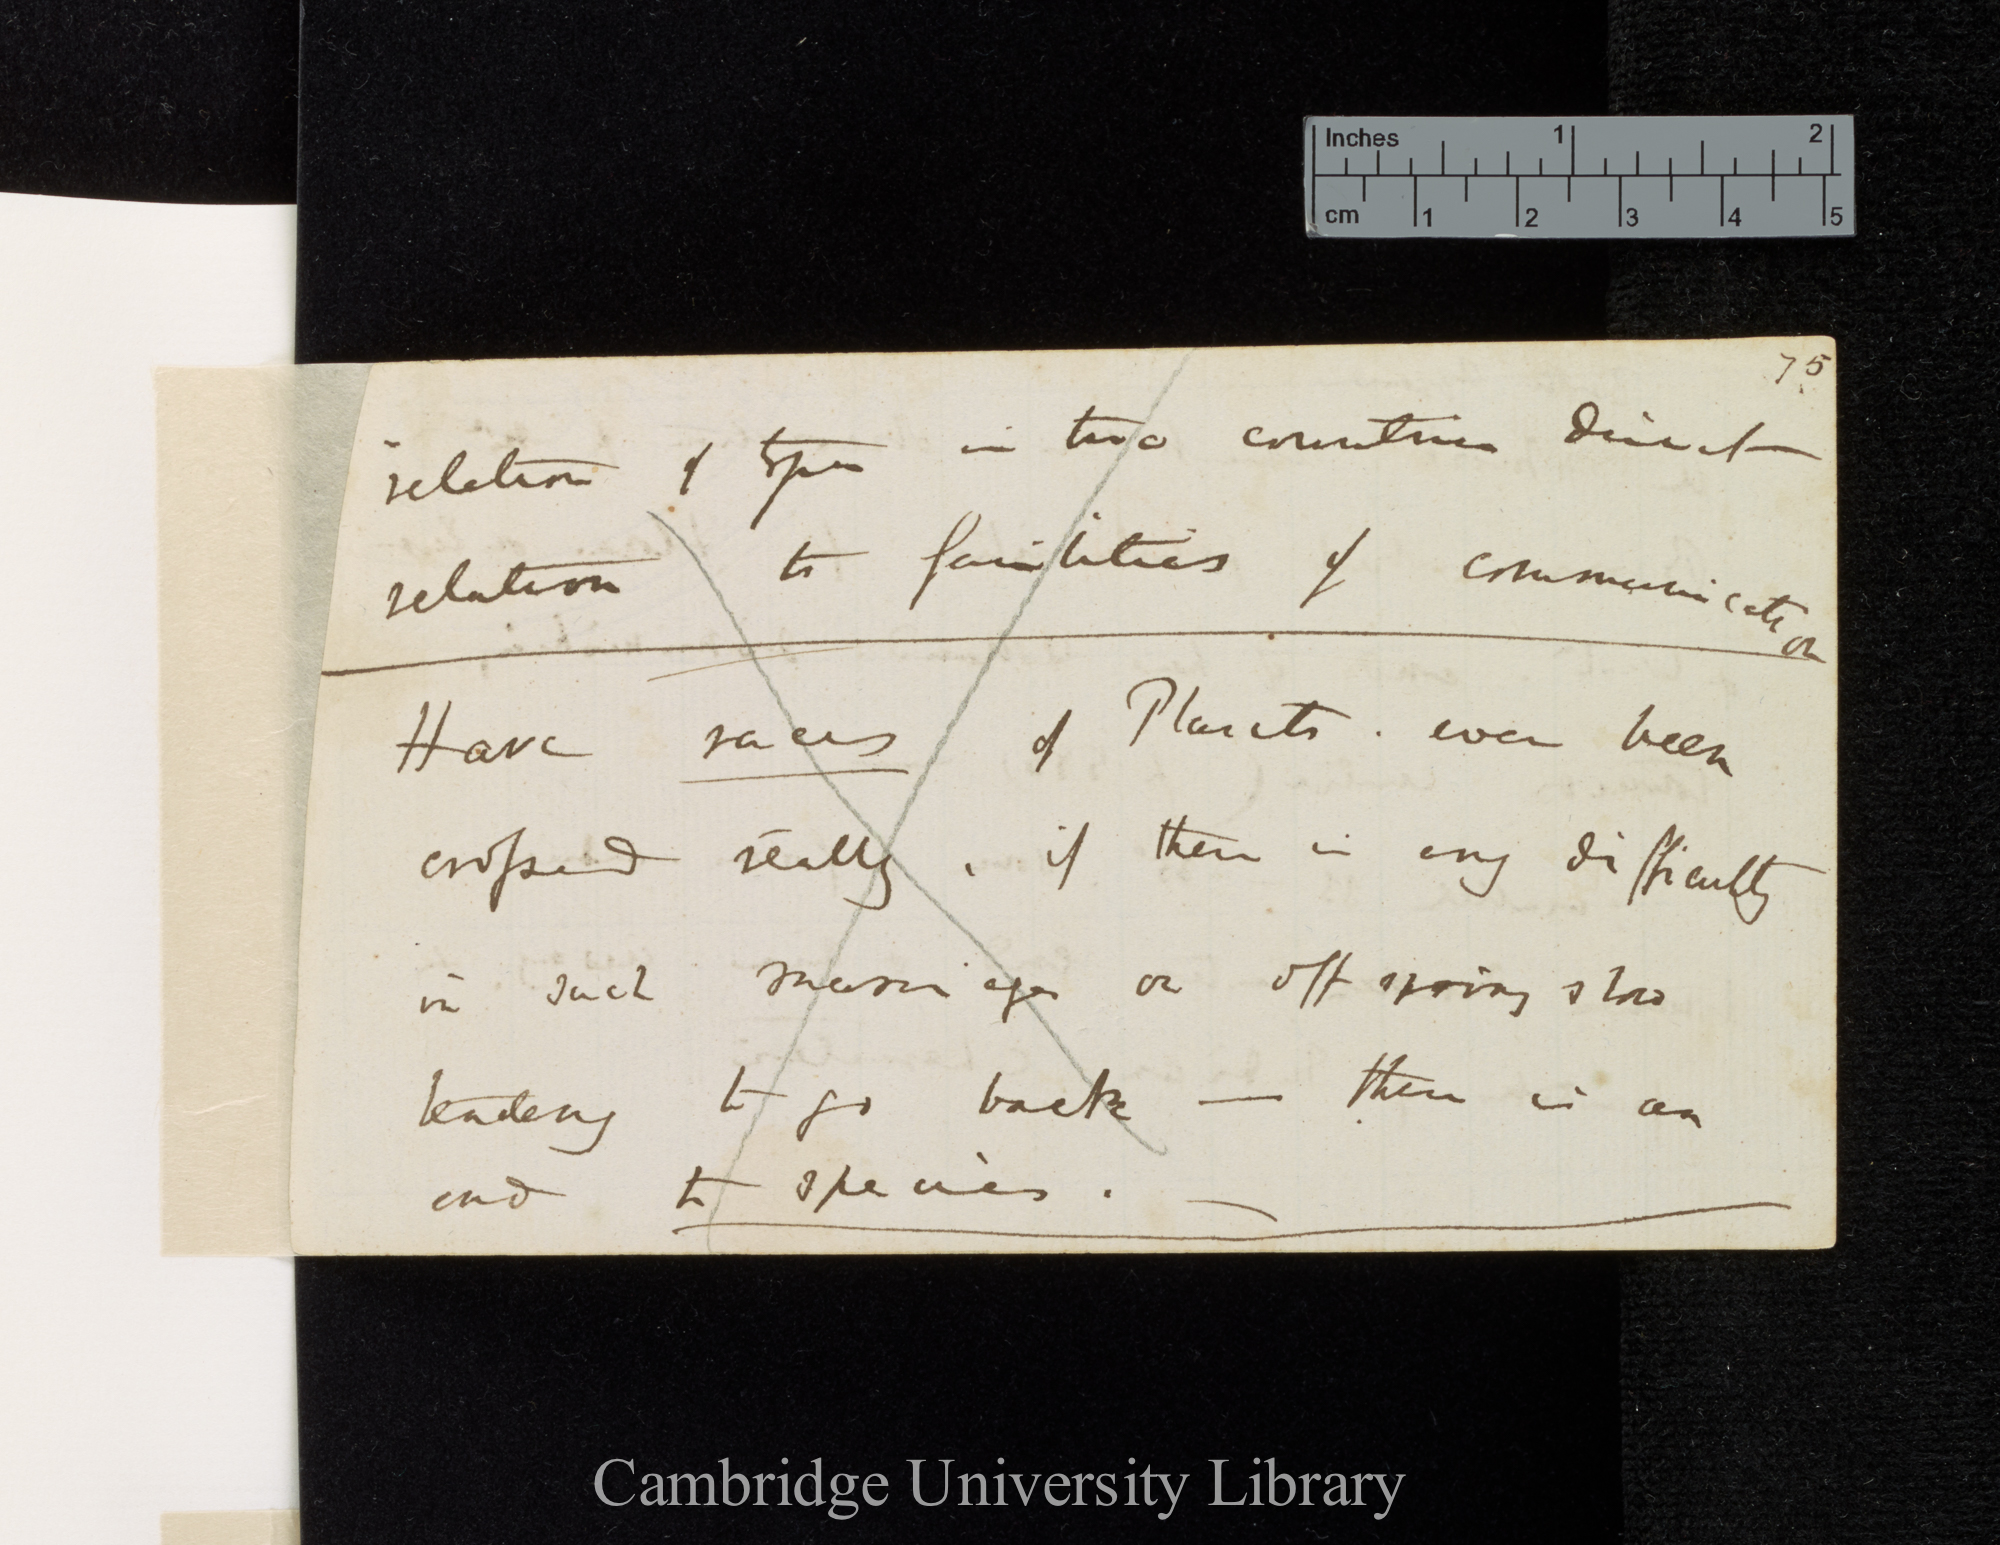 Inches 1 2
cm 1 2 3 4 5
75
relation of types in two countries direct
relation to facilities of communication
Have races of Plants. ever been
crossed really, if there is any difficulty
in such marriages or offspring show
tendency to go back — there is an
end to species. —
Cambridge University Library